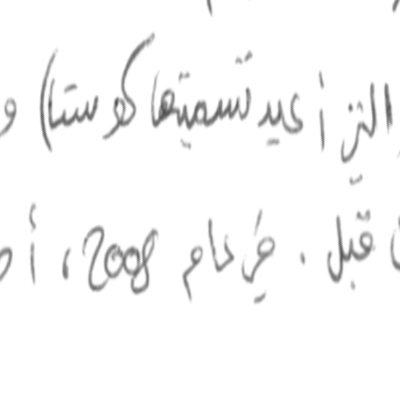 التي أعيد تسميتها كوستا) و
قبل . في عام 2008، أ